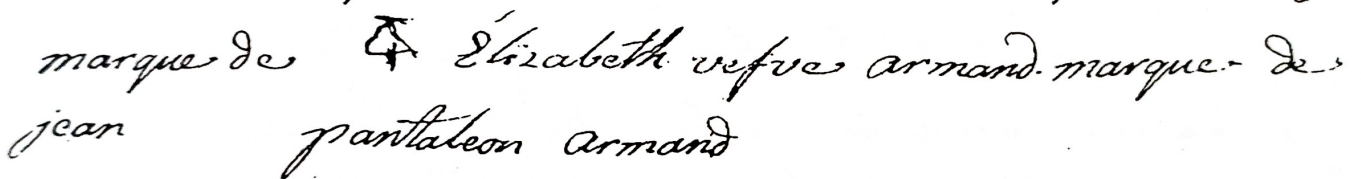 marque de Élizabeth vefve armand. marque- de
jean pantaleon armand